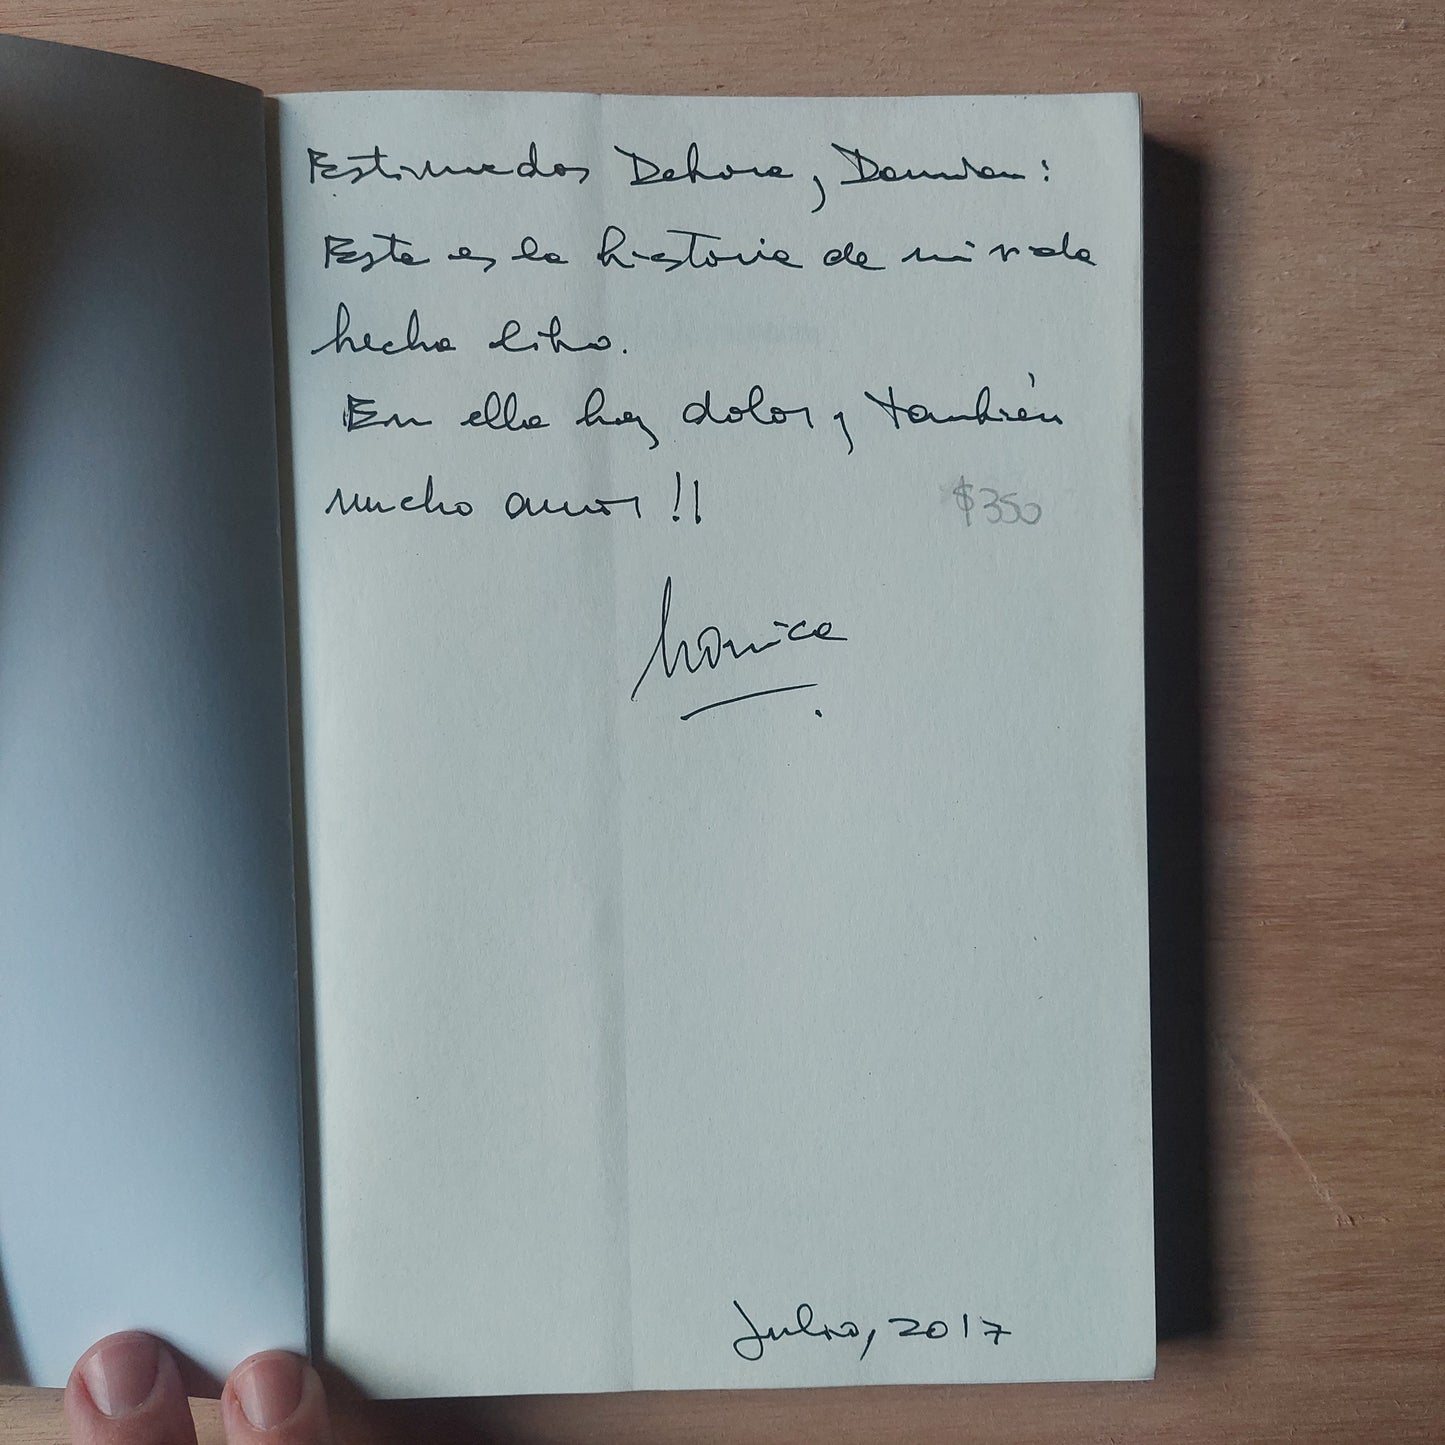 Estimados Debora y Damian:
Esta es la historia de mi vida
hecha libro.
En ella hay dolor y también
mucho amor!!
$350
Monica
Julio, 2017